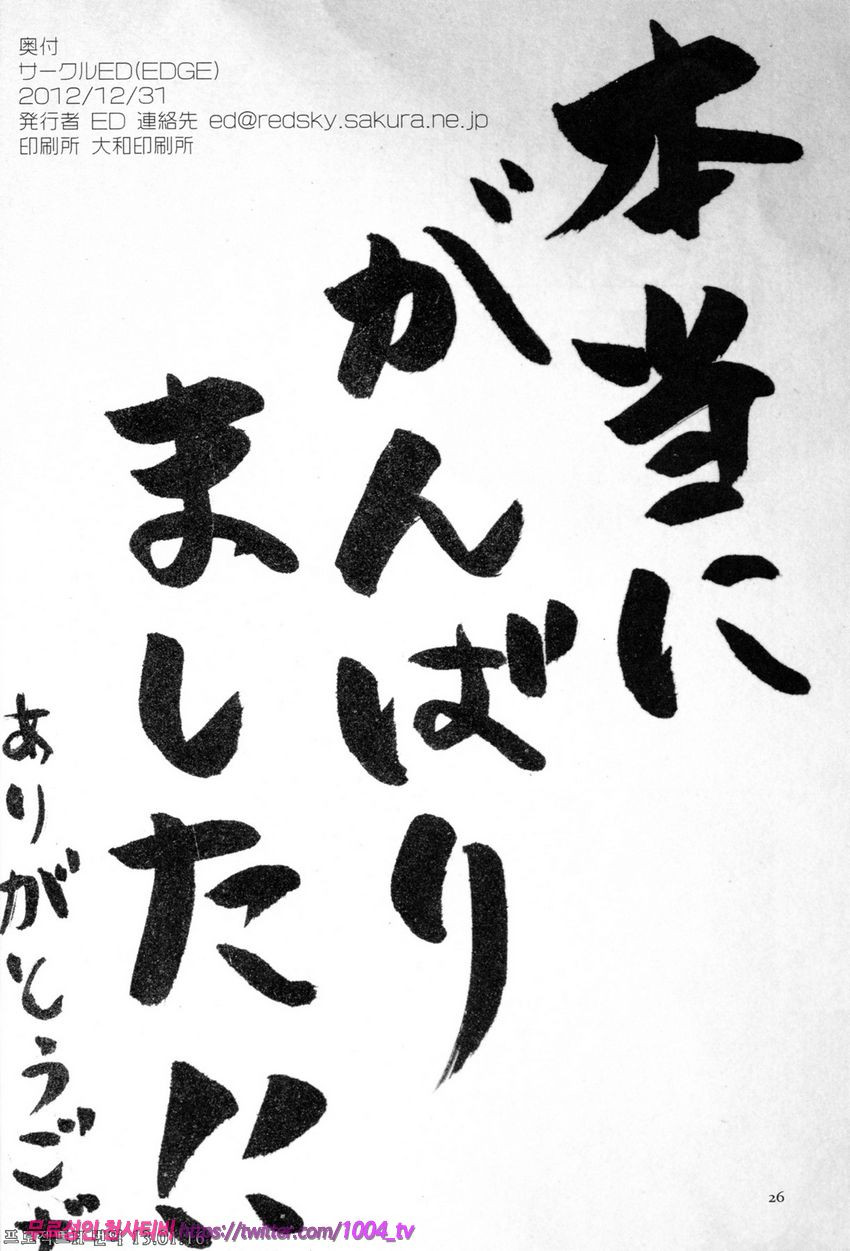 奥付
サークルED(EDGE)
2012/12/31
発行者 ED 連絡先 ed@redsky.sakura.ne.jp
印刷所 大和印刷所
本当に
がんばり
ました!!
ありがとうござ
26
무료성인 천사티비 https://twitter.com/1004_tv
13.01.16